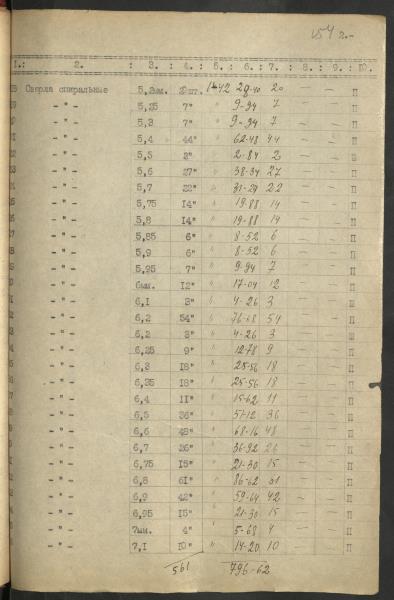 154 г.-
1.: 2. : 3. : 4. : 5. : 6. : 7. : 8. : 9. : 10.
Сверла спиральные 5,2мм. 20шт. 1-42 28-40 20 — — П
-"- 5,25 7" " 9-94 7 — — П
-"- 5,3 7" " 9-94 7 — — П
-"- 5,4 44" " 62-48 44 — — П
-"- 5,5 2" " 2-84 2 — — Ш
-"- 5,6 27" " 38-34 27 — — П
-"- 5,7 22" " 31-24 22 — — П
-"- 5,75 14" " 19-88 14 — — П
-"- 5,8 14" " 19-88 14 — — П
-"- 5,85 6" " 8-52 6 — — П
-"- 5,9 6" " 8-52 6 — — П
-"- 5,95 7" " 9-94 7 — — П
-"- 6мм. 12" " 17-04 12 — — П
-"- 6,1 3" " 4-26 3 — — Ш
-"- 6,2 54" " 76-68 54 — — П
-"- 6,2 3" " 4-26 3 — — Ш
-"- 6,25 9" " 12-78 9 — — П
-"- 6,3 18" " 25-56 18 — — П
-"- 6,35 18" " 25-56 18 — — П
-"- 6,4 11" " 15-62 11 — — П
-"- 6,5 36" " 51-12 36 — — П
-"- 6,6 48" " 68-16 48 — — П
-"- 6,7 26" " 36-92 26 — — П
-"- 6,75 15" " 21-30 15 — — П
-"- 6,8 61" " 86-62 61 — — П
-"- 6,9 42" " 59-64 42 — — П
-"- 6,95 15" " 21-30 15 — — П
-"- 7мм. 4" " 5-68 4 — — П
-"- 7,1 10" " 14-20 10 — — П
561 796-62